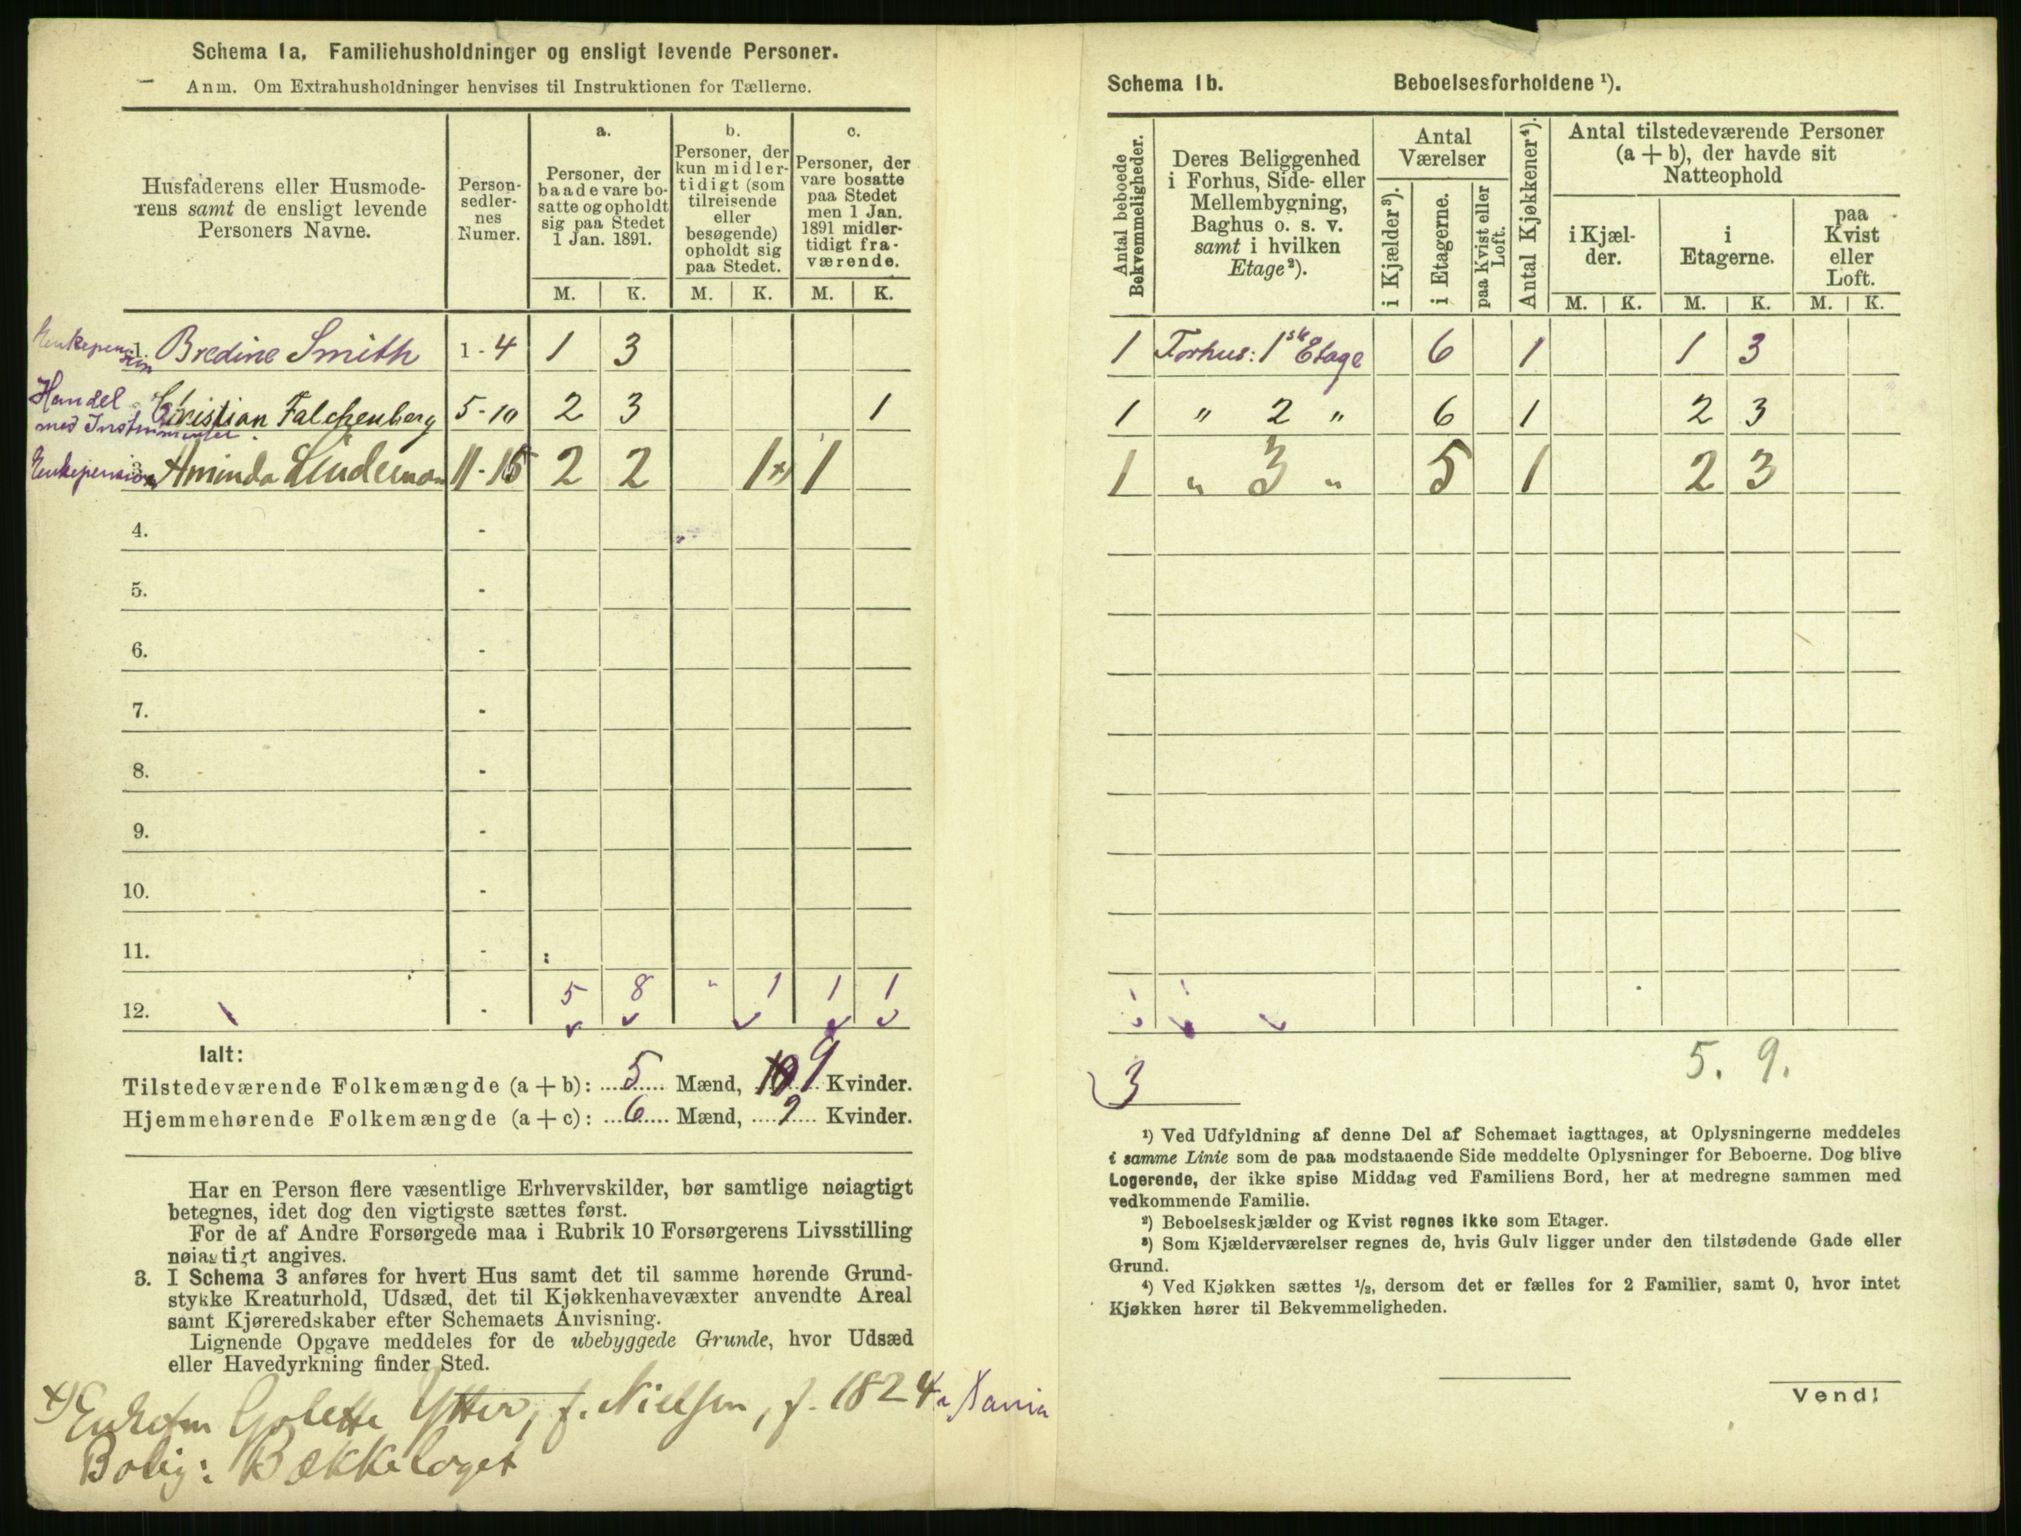 Schema 1a. Familiehusholdninger og ensligt levende Personer.
Anm. Om Extrahusholdninger henvises til Instruktionen for Tællerne.
Husfaderens eller Husmode-
rens samt de ensligt levende
Personers Navne.
Person-
sedler-
nes
Numer.
a.
Personer, der
baade vare bo-
satte og opholdt
sig paa Stedet
1 Jan. 1891.
b.
Personer, der
kun midler-
tidigt (som
tilreisende
eller
besøgende)
opholdt sig
paa Stedet.
c.
Personer, der
vare bosatte
paa Stedet
men 1 Jan.
1891 midler-
tidigt fra-
værende.
M. K. M. K. M. K.
Enkepension 1. Bredine Smith 1-4 1 3
Handel med Instrumenter Christian Falckenberg 5-10 2 3 1
Enkepension 3. Aminda Lindeman 11-15 2 2 1 x) 1
4. -
5. -
6. -
7. -
8. -
9. -
10. -
11. -
12. - 5 8 " 1 1 1
Ialt:
Tilstedeværende Folkemængde (a + b): 5 Mænd, 9 Kvinder.
Hjemmehørende Folkemængde (a + c): 6 Mænd, 9 Kvinder.
Har en Person flere væsentlige Erhvervskilder, bør samtlige nøiagtigt
betegnes, idet dog den vigtigste sættes først.
For de af Andre Forsørgede maa i Rubrik 10 Forsørgerens Livsstilling
nøiagtigt angives.
3. I Schema 3 anføres for hvert Hus samt det til samme hørende Grund-
stykke Kreaturhold, Udsæd, det til Kjøkkenhavevæxter anvendte Areal
samt Kjøreredskaber efter Schemaets Anvisning.
Lignende Opgave meddeles for de ubebyggede Grunde, hvor Udsæd
eller Havedyrkning finder Sted.
x) Enkefru Golette Ytter, f. Nielsen, f. 1824 i Xania
Bolig: Bækkelaget
Schema 1b. Beboelsesforholdene ¹).
Antal beboede
Bekvemmeligheder.
Deres Beliggenhed
i Forhus, Side- eller
Mellembygning,
Baghus o. s. v.
samt i hvilken
Etage ²).
Antal
Værelser
i Kjælder ³).
i Etagerne.
paa Kvist eller
Loft.
Antal Kjøkkener ⁴).
Antal tilstedeværende Personer
(a + b), der havde sit
Natteophold
i Kjæl-
der.
i
Etagerne.
paa
Kvist
eller
Loft.
M. K. M. K. M. K.
1 Forhus: 1ste Etage 6 1 1 3
1 " 2 " 6 1 2 3
1 " 3 " 5 1 2 3
3 5. 9.
¹) Ved Udfyldning af denne Del af Schemaet iagttages, at Oplysningerne meddeles
i samme Linie som de paa modstaaende Side meddelte Oplysninger for Beboerne. Dog blive
Logerende, der ikke spise Middag ved Familiens Bord, her at medregne sammen med
vedkommende Familie.
²) Beboelseskjælder og Kvist regnes ikke som Etager.
³) Som Kjælderværelser regnes de, hvis Gulv ligger under den tilstødende Gade eller
Grund.
⁴) Ved Kjøkken sættes ½, dersom det er fælles for 2 Familier, samt 0, hvor intet
Kjøkken hører til Bekvemmeligheden.
Vend!